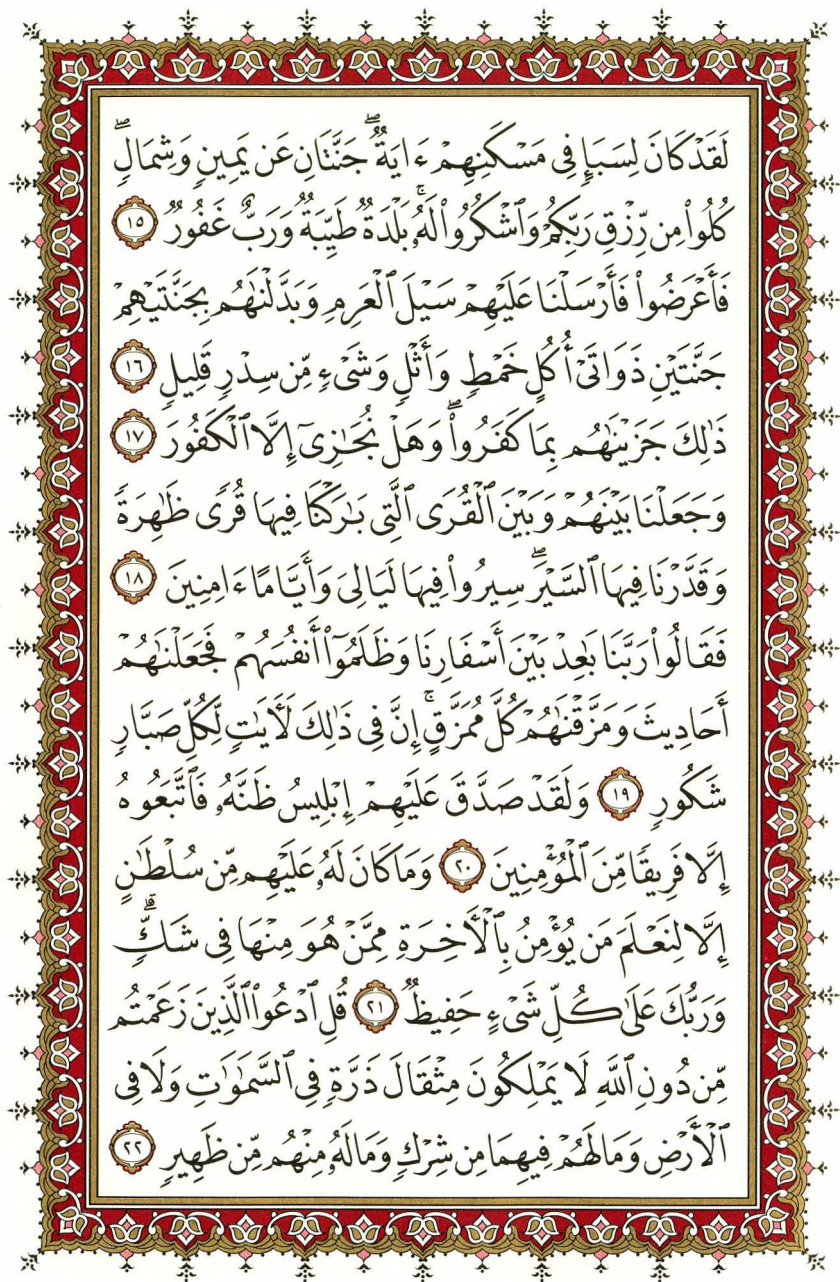 لَقَدْ كَانَ لِسَبَإٍ فِى مَسْكَنِهِمْ ءَايَةٌ ۖ جَنَّتَانِ عَن يَمِينٍ وَشِمَالٍ ۖ
كُلُوا۟ مِن رِّزْقِ رَبِّكُمْ وَٱشْكُرُوا۟ لَهُۥ ۚ بَلْدَةٌ طَيِّبَةٌ وَرَبٌّ غَفُورٌ ١٥
فَأَعْرَضُوا۟ فَأَرْسَلْنَا عَلَيْهِمْ سَيْلَ ٱلْعَرِمِ وَبَدَّلْنَٰهُم بِجَنَّتَيْهِمْ
جَنَّتَيْنِ ذَوَاتَىْ أُكُلٍ خَمْطٍ وَأَثْلٍ وَشَىْءٍ مِّن سِدْرٍ قَلِيلٍ ١٦
ذَٰلِكَ جَزَيْنَٰهُم بِمَا كَفَرُوا۟ ۖ وَهَلْ نُجَٰزِىٓ إِلَّا ٱلْكَفُورَ ١٧
وَجَعَلْنَا بَيْنَهُمْ وَبَيْنَ ٱلْقُرَى ٱلَّتِى بَٰرَكْنَا فِيهَا قُرًى ظَٰهِرَةً
وَقَدَّرْنَا فِيهَا ٱلسَّيْرَ ۖ سِيرُوا۟ فِيهَا لَيَالِىَ وَأَيَّامًا ءَامِنِينَ ١٨
فَقَالُوا۟ رَبَّنَا بَٰعِدْ بَيْنَ أَسْفَارِنَا وَظَلَمُوٓا۟ أَنفُسَهُمْ فَجَعَلْنَٰهُمْ
أَحَادِيثَ وَمَزَّقْنَٰهُمْ كُلَّ مُمَزَّقٍ ۚ إِنَّ فِى ذَٰلِكَ لَءَايَٰتٍ لِّكُلِّ صَبَّارٍ
شَكُورٍ ١٩ وَلَقَدْ صَدَّقَ عَلَيْهِمْ إِبْلِيسُ ظَنَّهُۥ فَٱتَّبَعُوهُ
إِلَّا فَرِيقًا مِّنَ ٱلْمُؤْمِنِينَ ٢٠ وَمَا كَانَ لَهُۥ عَلَيْهِم مِّن سُلْطَٰنٍ
إِلَّا لِنَعْلَمَ مَن يُؤْمِنُ بِٱلْءَاخِرَةِ مِمَّنْ هُوَ مِنْهَا فِى شَكٍّ ۗ
وَرَبُّكَ عَلَىٰ كُلِّ شَىْءٍ حَفِيظٌ ٢١ قُلِ ٱدْعُوا۟ ٱلَّذِينَ زَعَمْتُم
مِّن دُونِ ٱللَّهِ لَا يَمْلِكُونَ مِثْقَالَ ذَرَّةٍ فِى ٱلسَّمَٰوَٰتِ وَلَا فِى
ٱلْأَرْضِ وَمَا لَهُمْ فِيهِمَا مِن شِرْكٍ وَمَا لَهُۥ مِنْهُم مِّن ظَهِيرٍ ٢٢